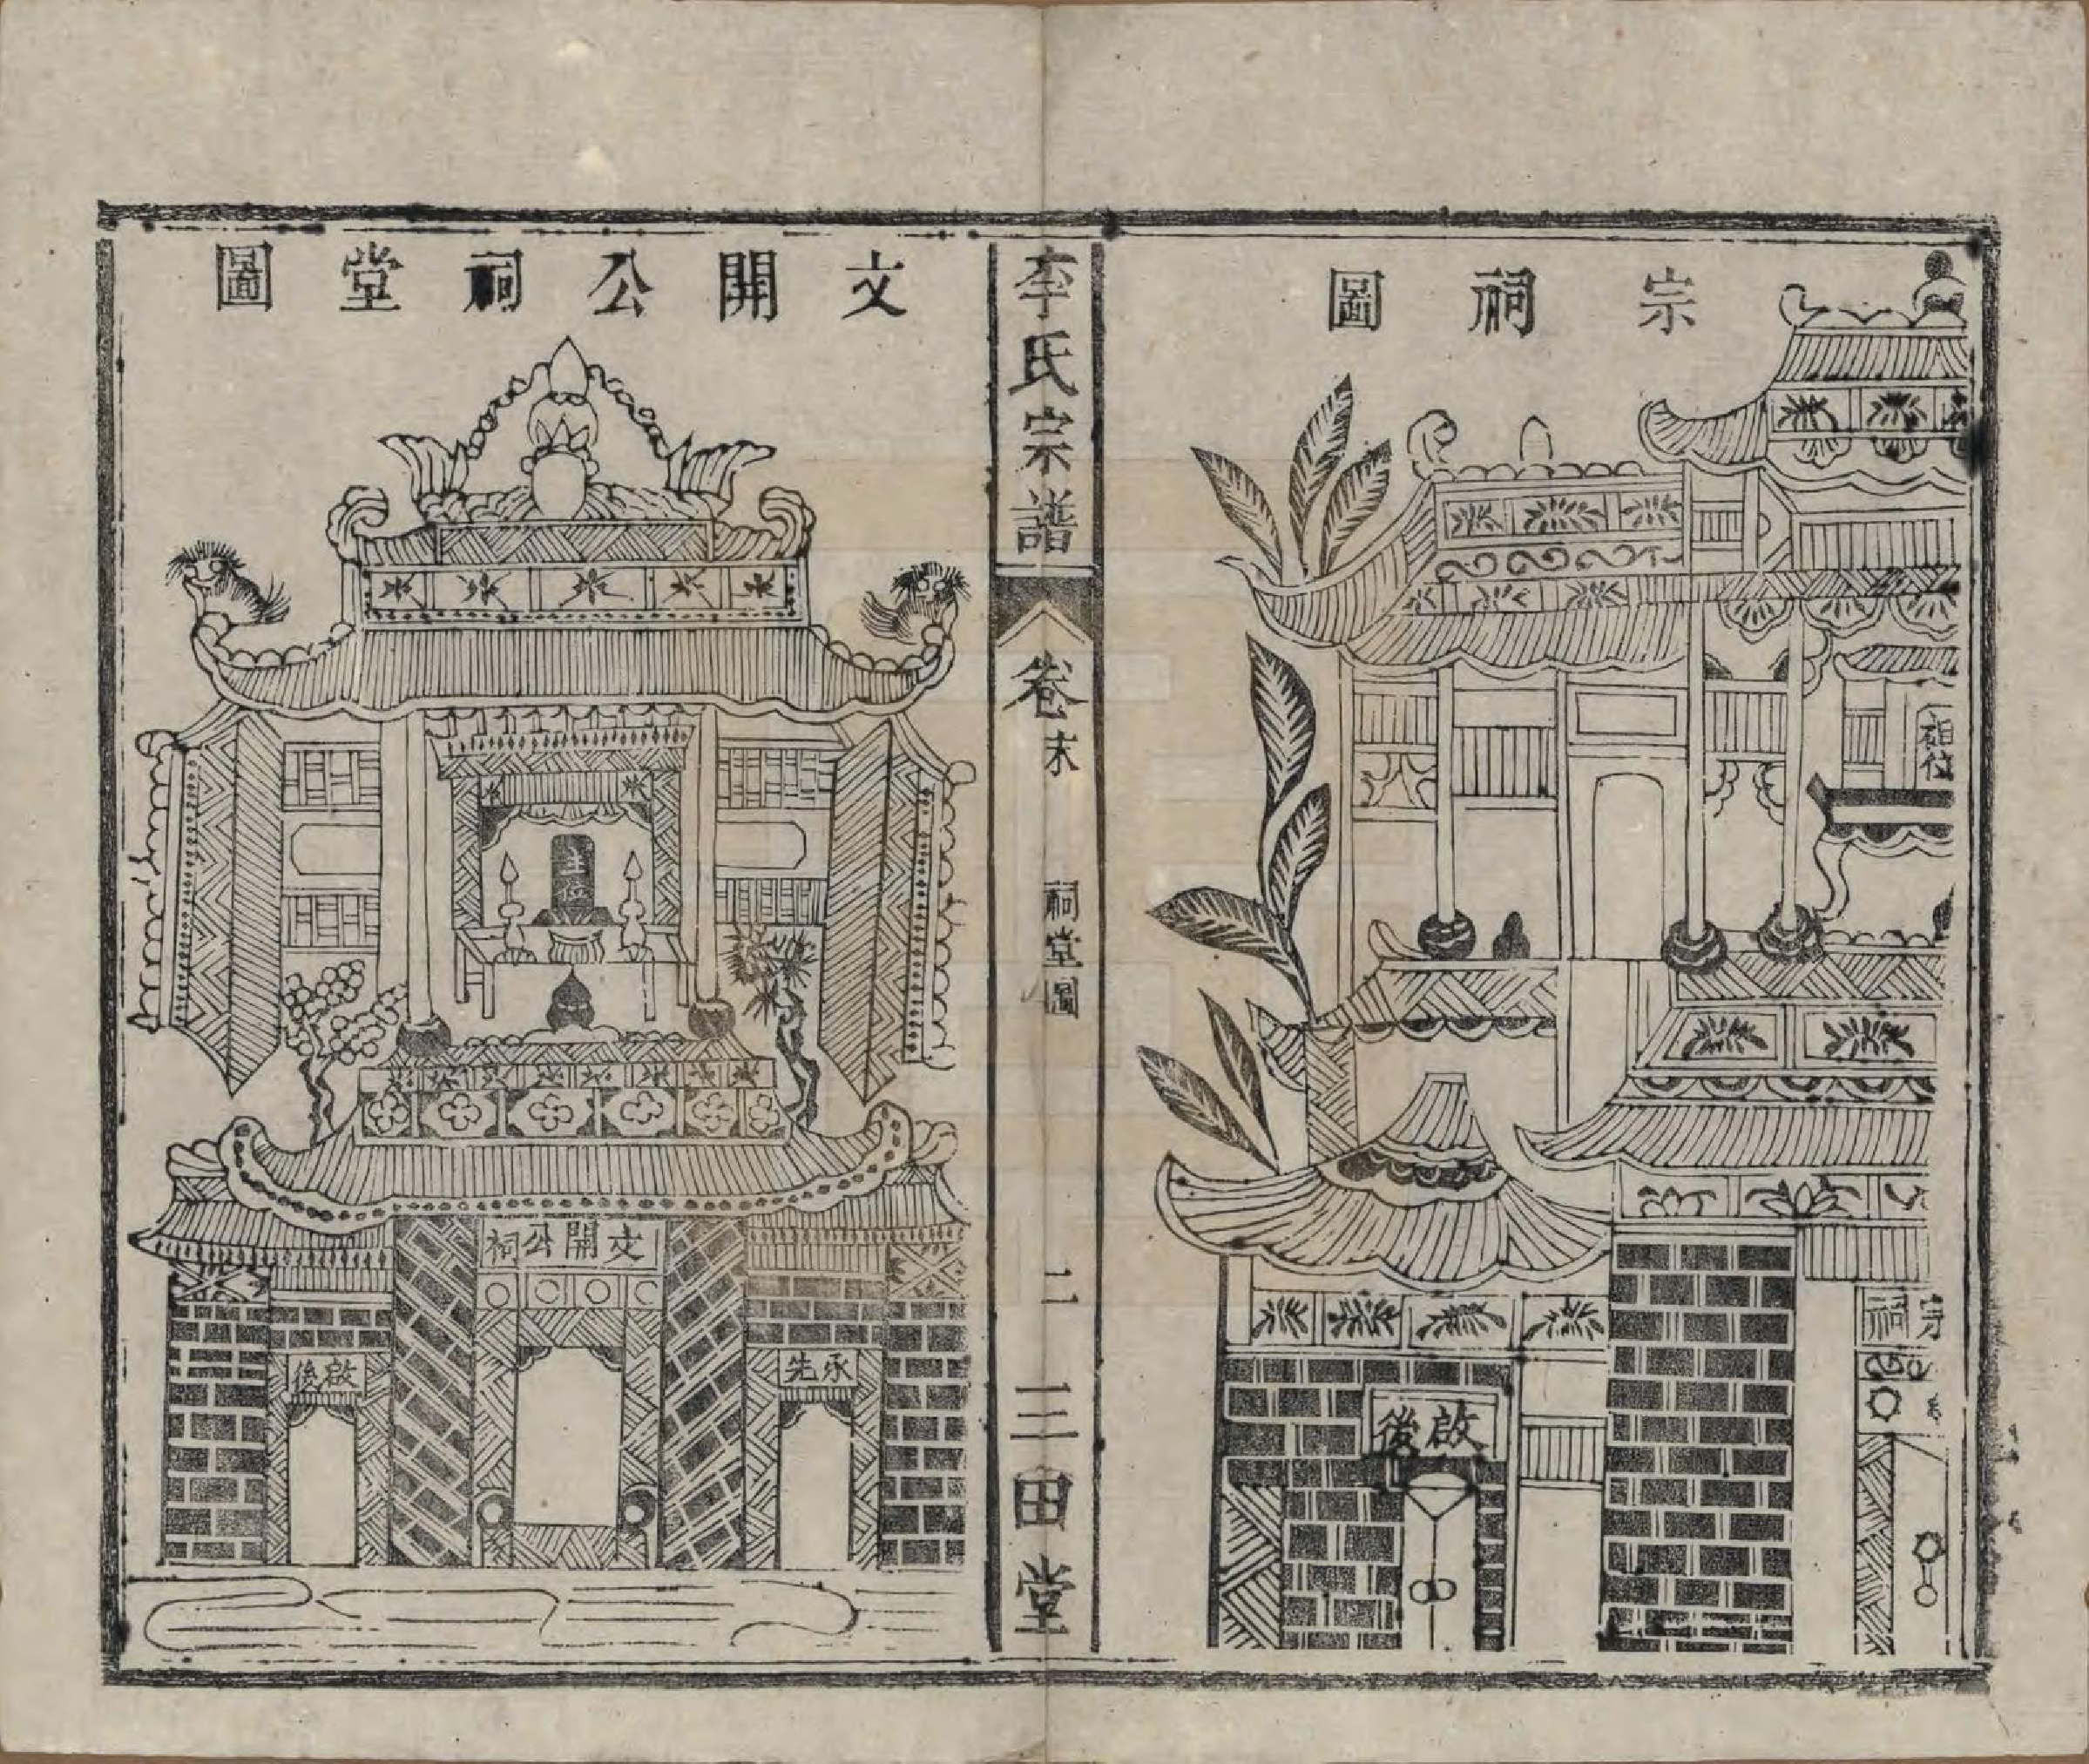 宗祠圖
祖位
宗祠
啟後
李氏宗譜
卷末
祠堂圖
二
三田堂
文開公祠堂圖
主位
文開公祠
承先
啟後